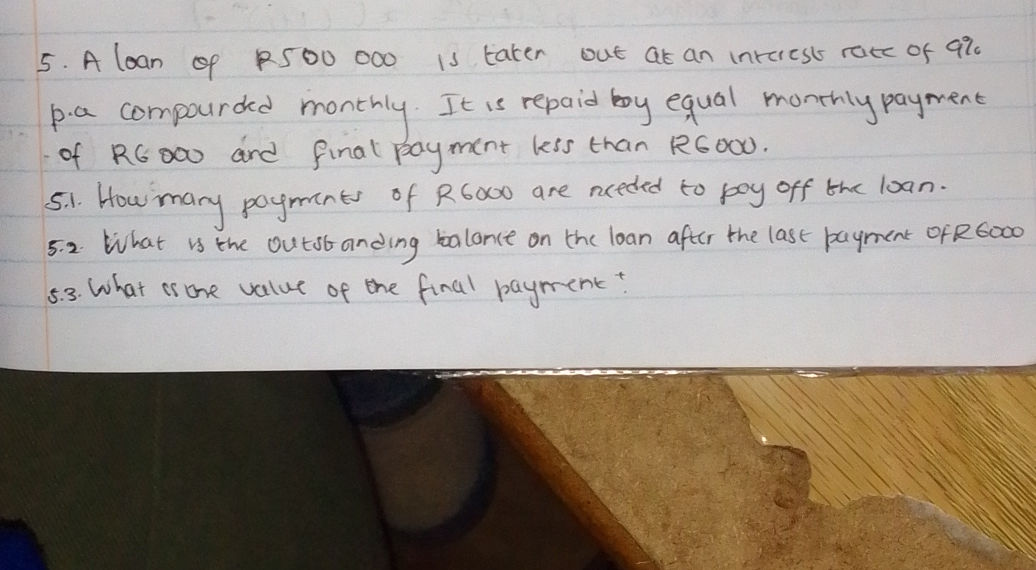 5. A loan of R500 000 is taken out at an interest rate of 9%
p.a compounded monthly. It is repaid by equal monthly payment
of R6 000 and final payment less than R6000.
5.1. How many payments of R6000 are needed to pay off the loan.
5.2. What is the outstanding balance on the loan after the last payment of R6000
5.3. What is the value of the final payment?